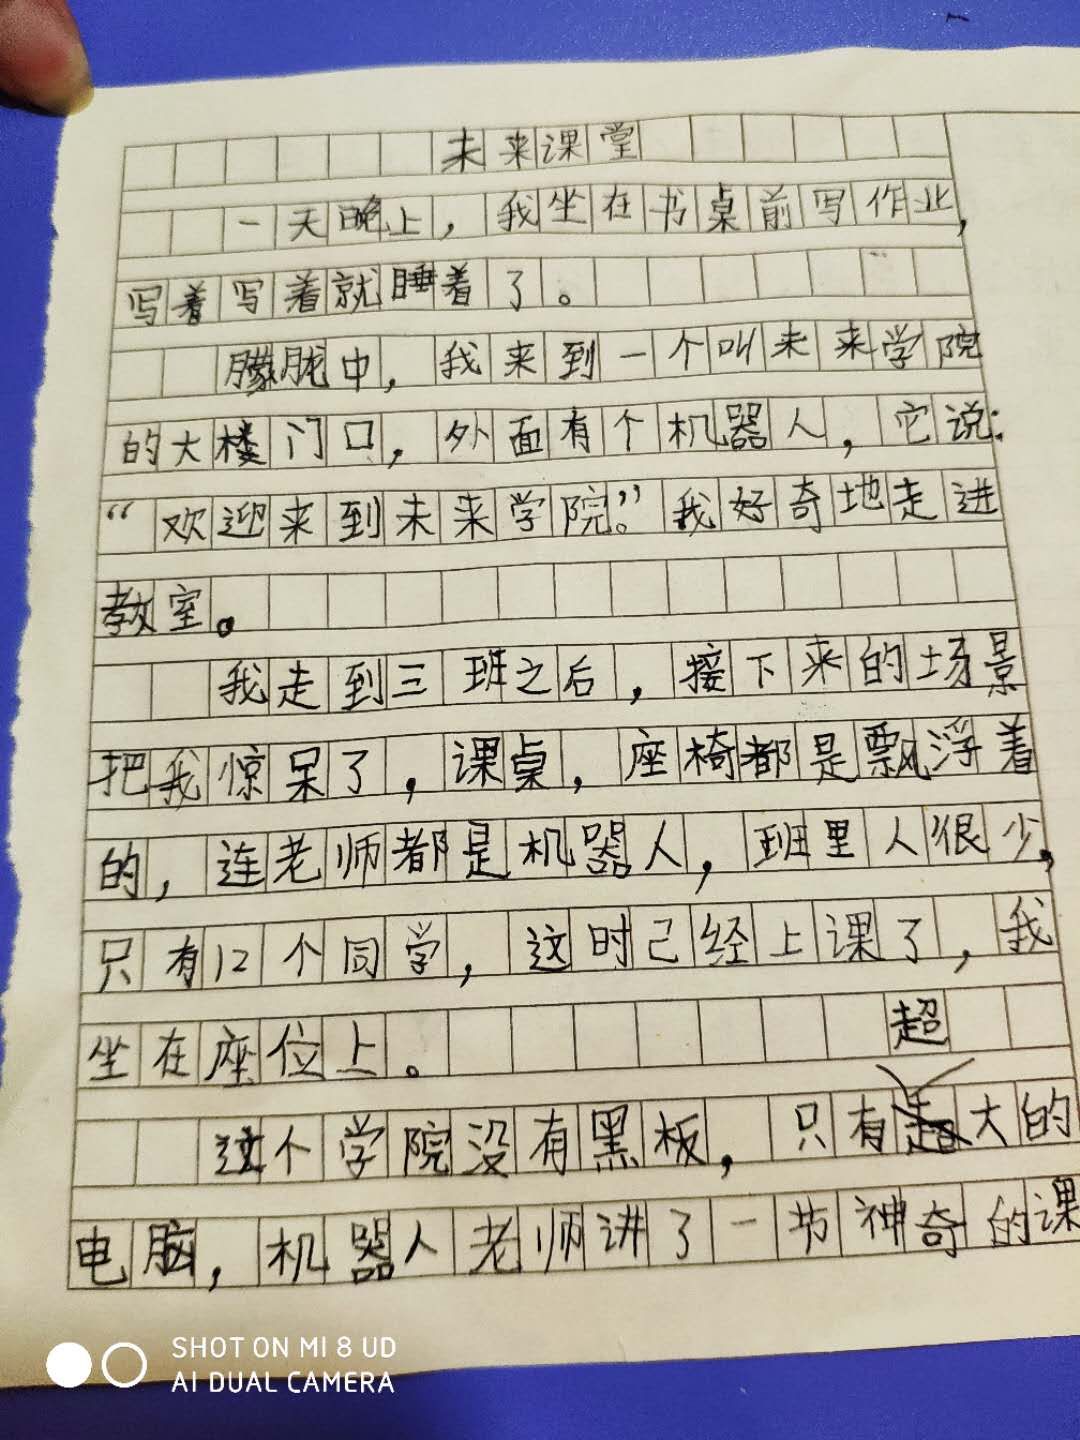 未来课堂
一天晚上，我坐在书桌前写作业，
写着写着就睡着了。
朦胧中，我来到一个叫未来学院
的大楼门口，外面有个机器人，它说：
“欢迎来到未来学院。”我好奇地走进
教室。
我走到三班之后，接下来的场景
把我惊呆了，课桌，座椅都是飘浮着
的，连老师都是机器人，班里人很少，
只有12个同学，这时已经上课了，我
坐在座位上。
超
这个学院没有黑板，只有大的
电脑，机器人老师讲了一节神奇的课
SHOT ON MI 8 UD
AI DUAL CAMERA